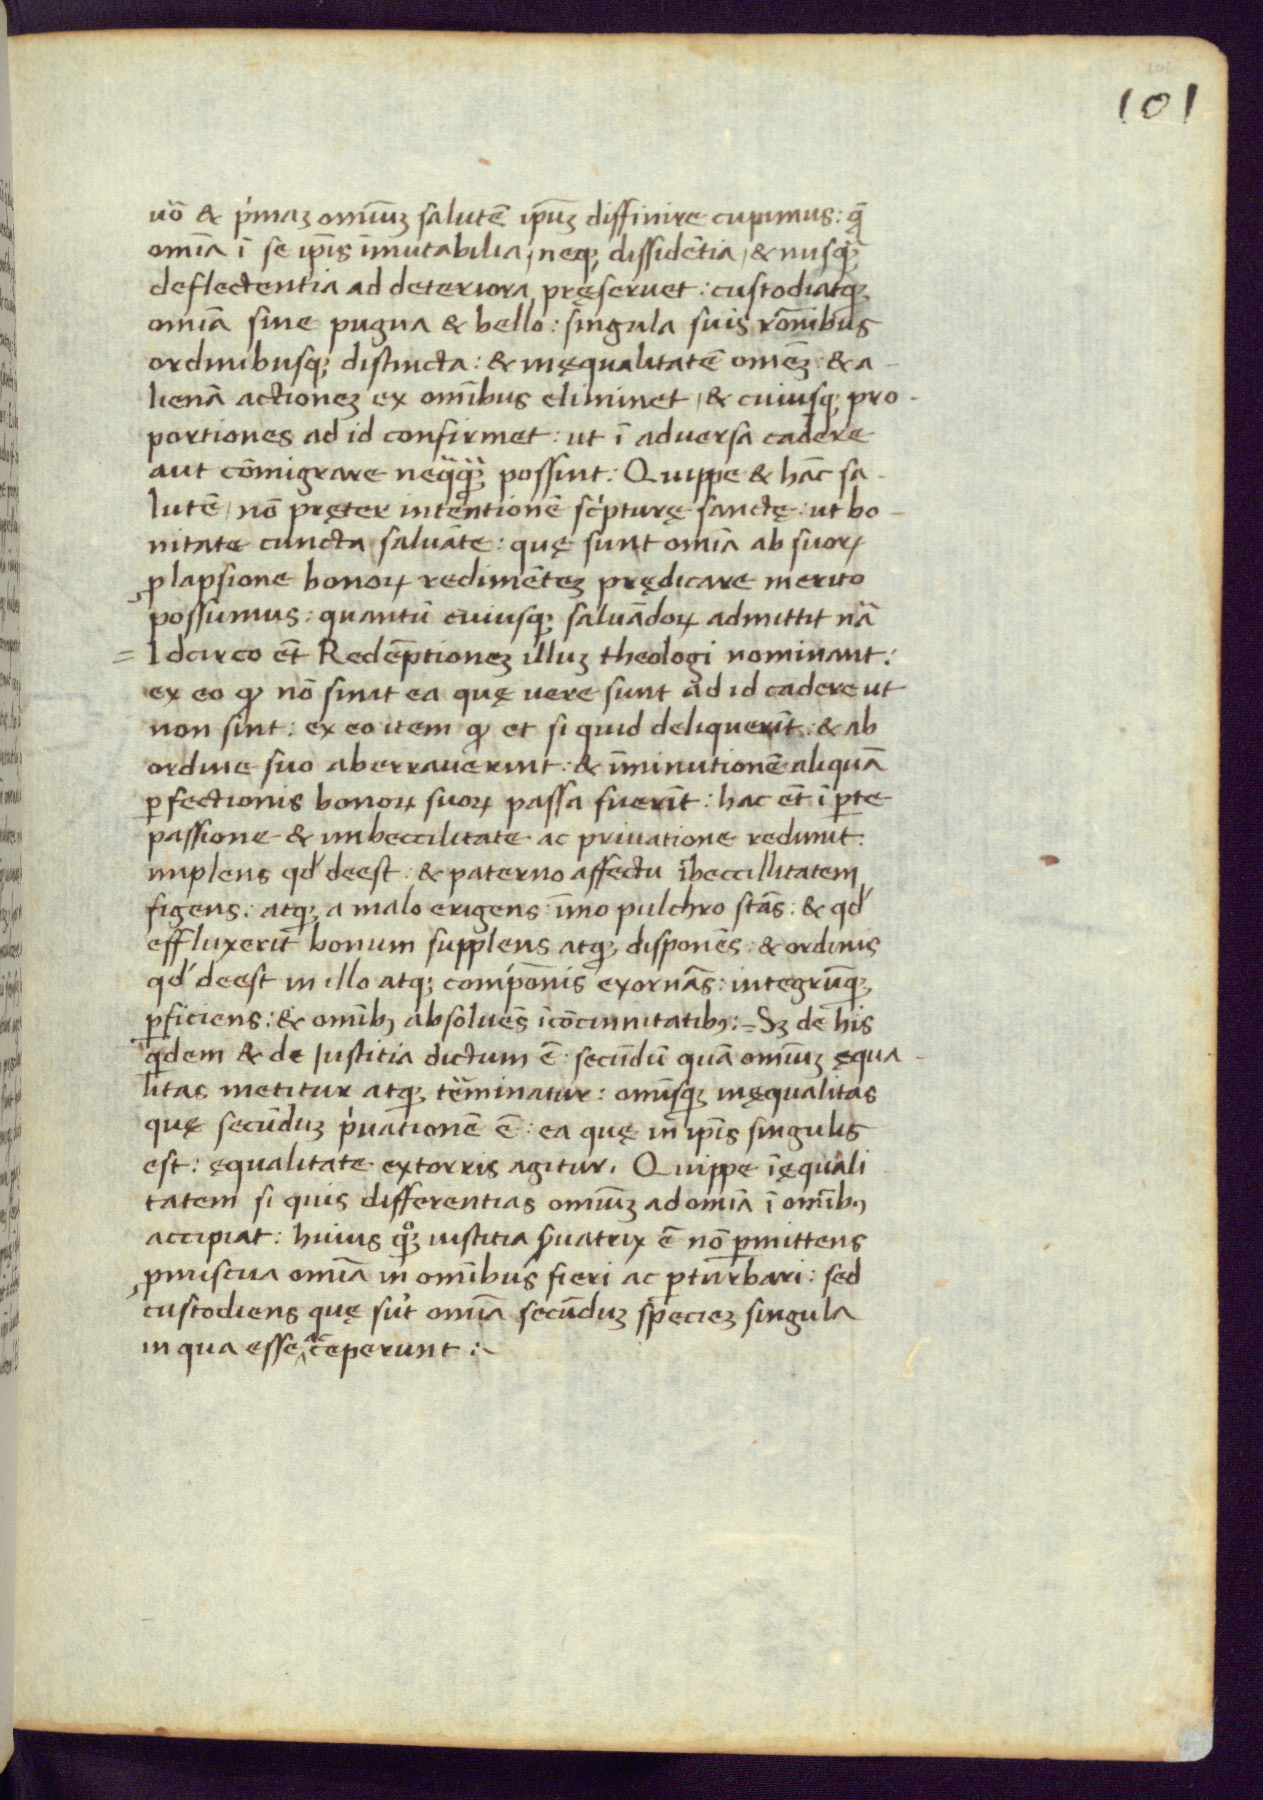 101
uō & p̍maꝫ omīuꝫ salutē ip̄uꝫ diffinire cupimus: q̄
omīa ī se ip̄is īmutabilia, neqꝫ dissidētia, & nusqꝫ̄
deflectentia ad deteriora pręseruet: custodiatqꝫ
omīa sine pugna & bello: singula suis rōnibus
ordinibusqꝫ distincta: & inęqualitatē omēꝫ: & a-
lienā actioneꝫ ex omībus eliminet, & cuiusqꝫ pro-
portiones ad id confirmet: ut ī adversa cadere
aut cōmigrare neq̈qꝫ̈ possint: Quippe & hāc sa-
lutē, nō pręter intentionē sc̍pturę sanctę: ut bo-
nitate cuncta saluāte: quę sunt omīa ab suoꝝ
ꝓlapsione bonoꝝ redimēteꝫ prędicare merito
possumus: quantū cuiusqꝫ saluādoꝝ admittit nā
= Idcirco ēt Redēptioneꝫ illuꝫ theologi nominant:
ex eo ꝙ nō sinit ea quę uere sunt ad id cadere ut
non sint: ex eo item ꝙ et si quid deliquerīt: & ab
ordine suo aberrauerint: & īminutionē aliquā
ꝑfectionis bonoꝝ suoꝝ passa fuerīt: hac ēt ī ꝑte
passione & imbeccilitate ac priuatione redimit:
implens qd̕ deest: & paterno affectu ībeccillitatem
figens: atqꝫ a malo erigens: īmo pulchro stās: & qd̕
effluxerīt bonum supplens atqꝫ disponēs: & ordinis
qd̕ deest in illo atqꝫ compōnis exornās: integrūqꝫ
ꝑficiens: & omībꝫ absoluēs īcōcinnitatibꝫ:= Sꝫ de his
q̍dem & de Iustitia dictum ē: secūdū quā omīuꝫ ęqua-
litas metitur atqꝫ tēminatur: omīsqꝫ inęqualitas
quę secūduꝫ p̍uationē ē: ea quę in ip̄is singulis
est: ęqualitate extorris agitur, Quippe īęquali
tatem si quis differentias omīuꝫ ad omīa ī omībꝫ
accipiat: huius qͦꝫ iustitia s̄uatrix ē nō ꝑmittens
ꝓmiscua omīa in omībus fieri ac ꝑturbari: sed
custodiens quę sūt omīa secūduꝫ specieꝫ singula
in qua esse acceperunt:~